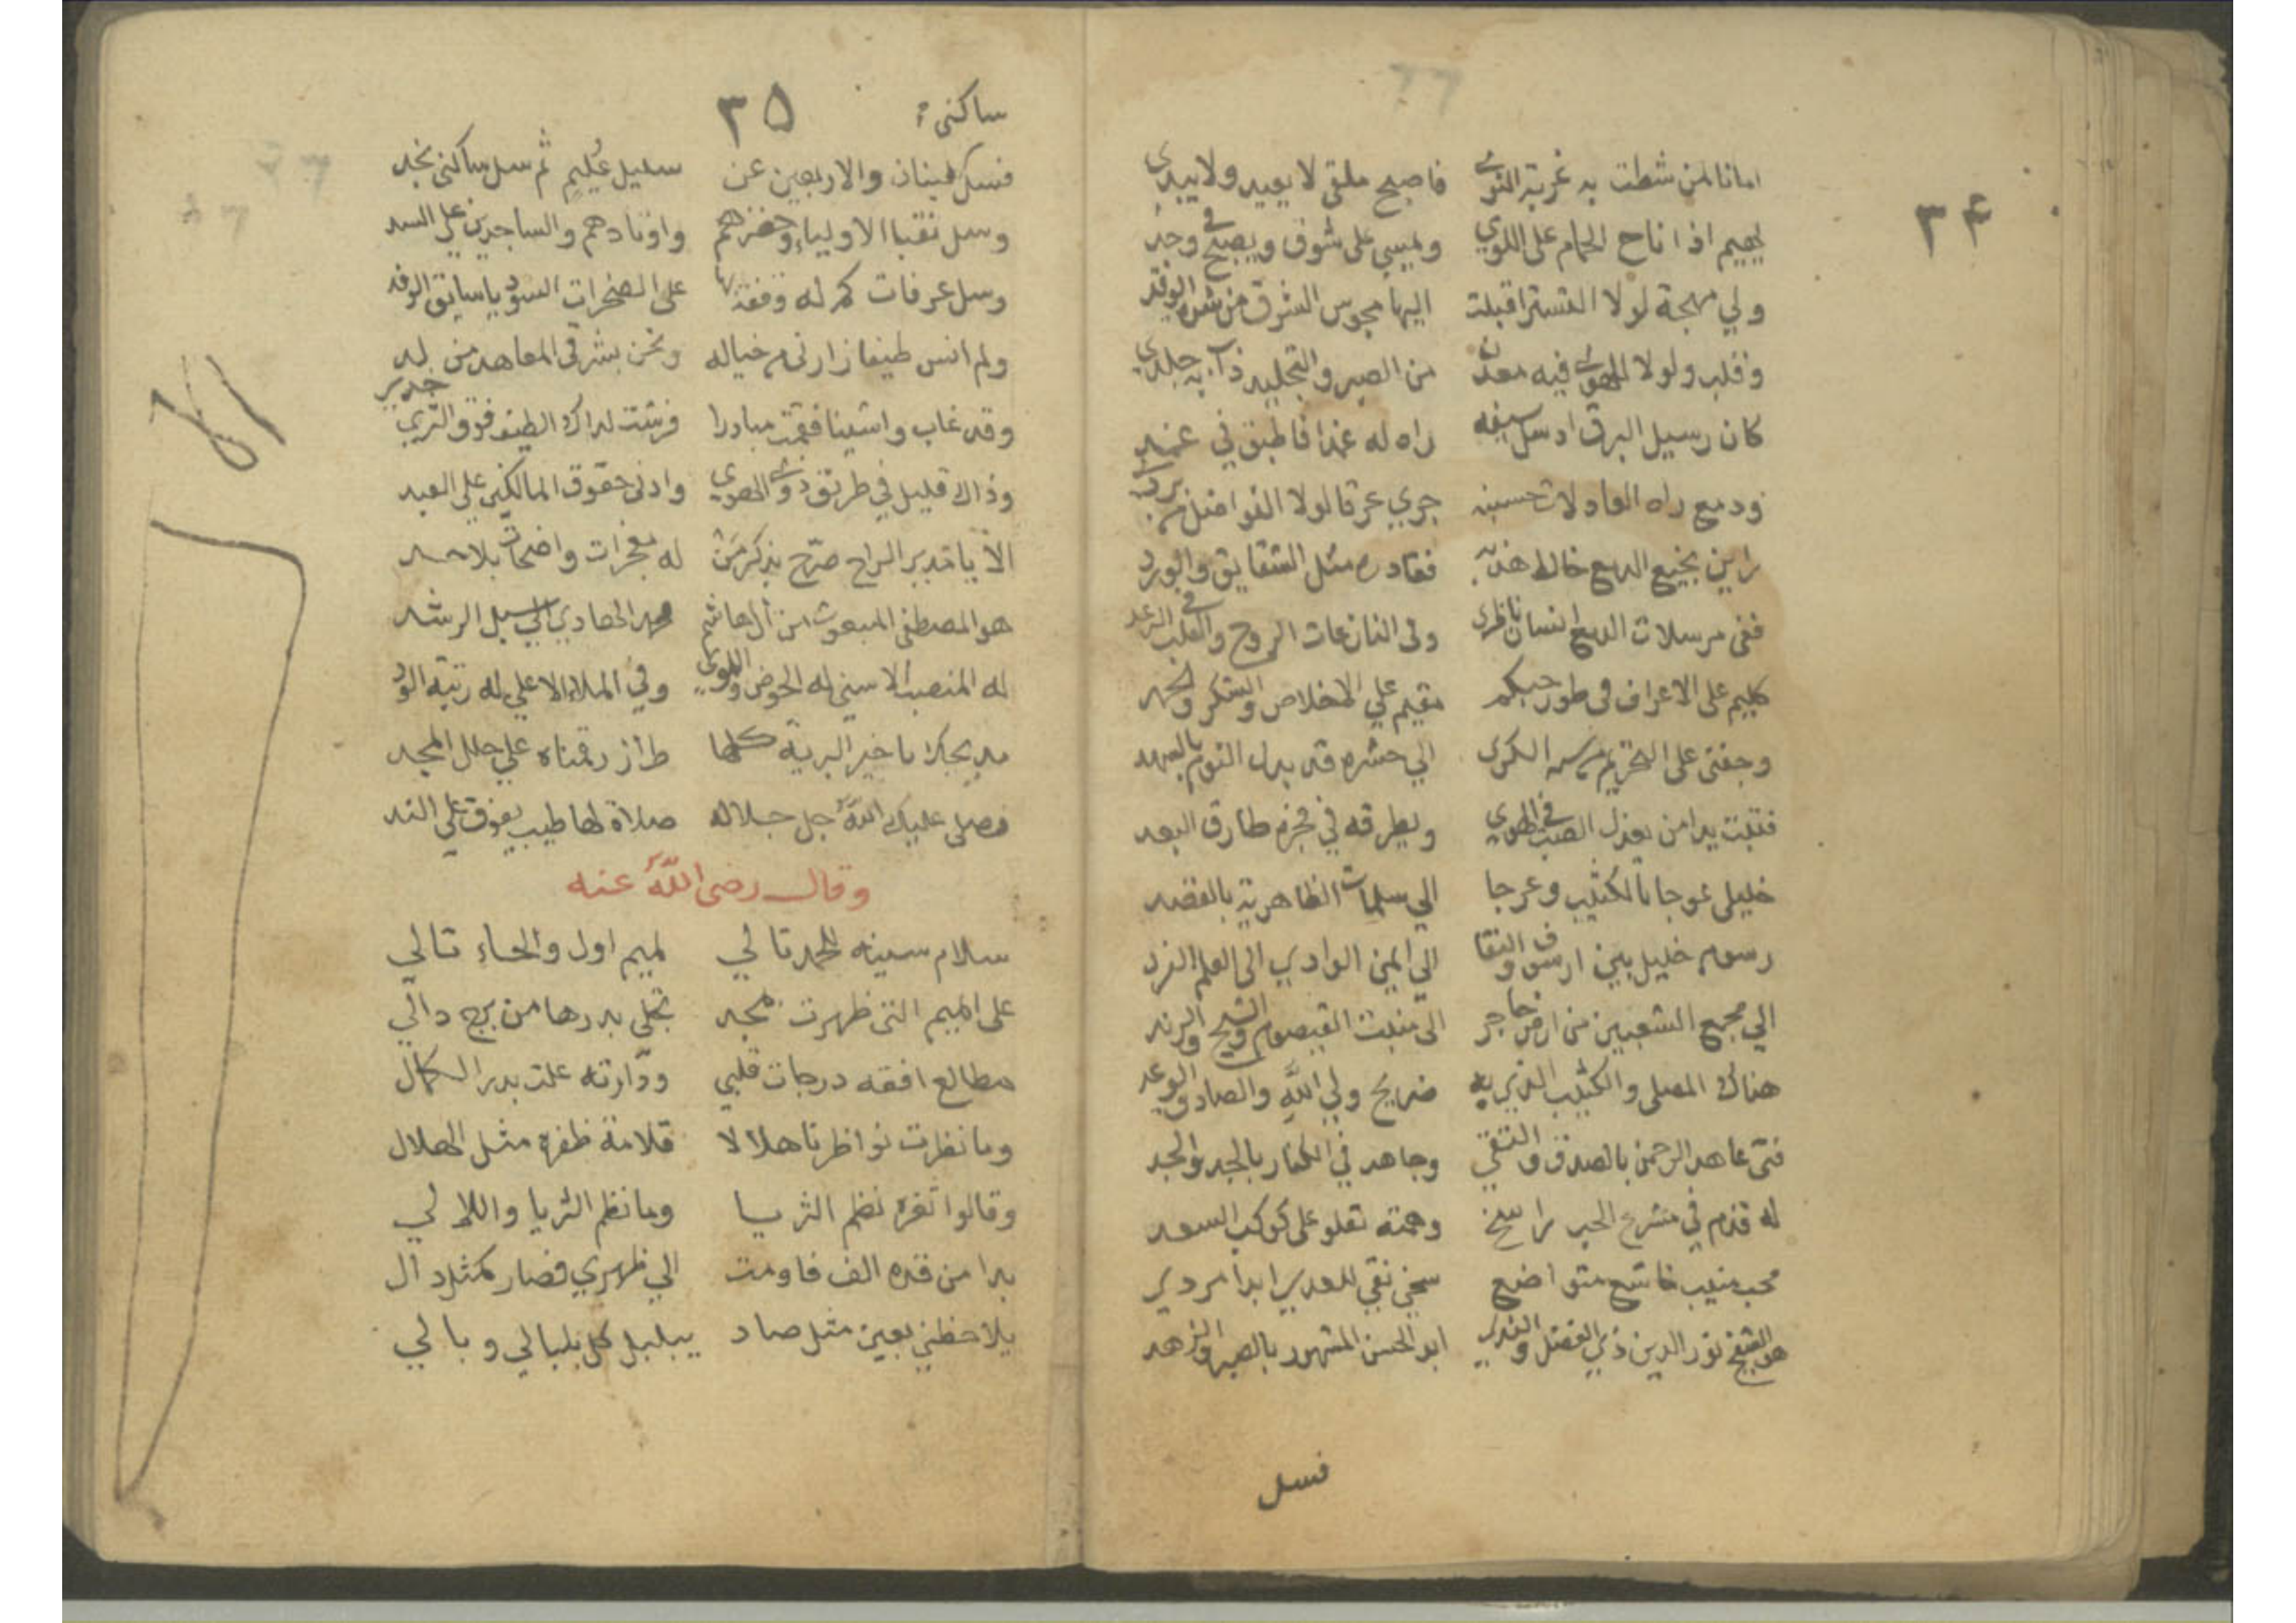 ٣٤
امانا لمن شطت به غربة النوى فاصبح ملقى لا يعيد ولا يبدي
يهيم اذا ناح الحمام على اللوي ويمسي على شوق ويصبح في وجد
ولي مهجة لولا التستر اقبلت اليها مجوس الشرق من الوقد
وقلب ولولا الهوى فيه معدن من الصبر والتجليد ذاب به جلدي
كان رسيل البرق ارسل سيفه راه له غمدا فاطبق في غمد
ودمع راه العاذلات حسبنه جري عرقا لولا
راين نجيع الدمع خالط خده فغادره مثل الشقايق والورد
ففي مرسلات الدمع انسان ناظري وفي النازعات الروح والقلب في الرعد
كليم على الاعراف في طور حبكم مقيم علي الاخلاص والشكر والحمد
وجفني على التحريم من سنة الكرى الي حشره قد بدل النوم بالسهد
فتبت يدا من يعذل الصب في الهوي ويطرقه في فجره طارق البعد
خليلي عوجا بالكثيب وعرجا الي سلمات الظاهرية بالقصد
رسوم خليل بين ارسوف والنقا الي ايمن الوادي الى العلم الفرد
الي مجمع الشعبين من ارض حاجر الى منبت القيصوم والشيح والرند
هناك المصلى والكثيب الذي به ضريح ولي الله والصادق الوعد
فتى عاهد الرحمن بالصدق والتقي وجاهد في الكفار بالجد والجد
له قدم في مشرع الحب راسخ وهمته تعلو على كوكب السعد
محب منيب خاشع متواضع سخي نقي للعدي ابدا مردي
هو الشيخ نور الدين ذي الفضل والندي ابو الحسن المشهور بالصبر والزهد
فسل
ساكني
٣٥
فسل لبنان والاربعين عن سليل عُليم ثم سل ساكني نجد
وسل نقبا الاولياء وخضرهم واوتادهم والساجدين علي السد
وسل عرفات كم له وقفة بها على الصخرات السود يا سايق الوفد
ولم انس طيفا زارني من خياله ونحن بشرقي المعاهد من لد
وقد غاب واشينا فقمت مبادرا فرشت لذاك الطيف فوق الثري خدي
وذاك قليل في طريق ذوي الهوي وادنى حقوق المالكين علي العبد
الا يا نديم الراح صرّح بذكر مَن له معجزات واضحات بلا حد
هو المصطفى المبعوث من آل هاشم محمد الهادي الي سبل الرشد
له المنصب الاسني له الحوض واللوي وفي الملاء الاعلي له رتبة الود
مديحك يا خير البرية كلها طراز رقمناه علي حلل المجد
فصلى عليك الله جل جلاله صلاة لها طيب يفوق علي الند
وقال رضى الله عنه
سلام سينه للحمد تالي لميم اول والحاء تالي
على الميم التي ظهرت بمجد تجلى بدرها من برج دالي
مطالع افقه درجات قلبي ودارته علت بدر الكمال
وما نظرت نواظرنا هلالا قلامة ظفره مثل الهلال
وقالوا ثغره نظم الثريا وما نظم الثريا واللالي
بدا من قده الف فاومت الي ظهري فصار كمثل دال
يلاحظني بعين مثل صاد يبلبل كل بلبالي وبالي